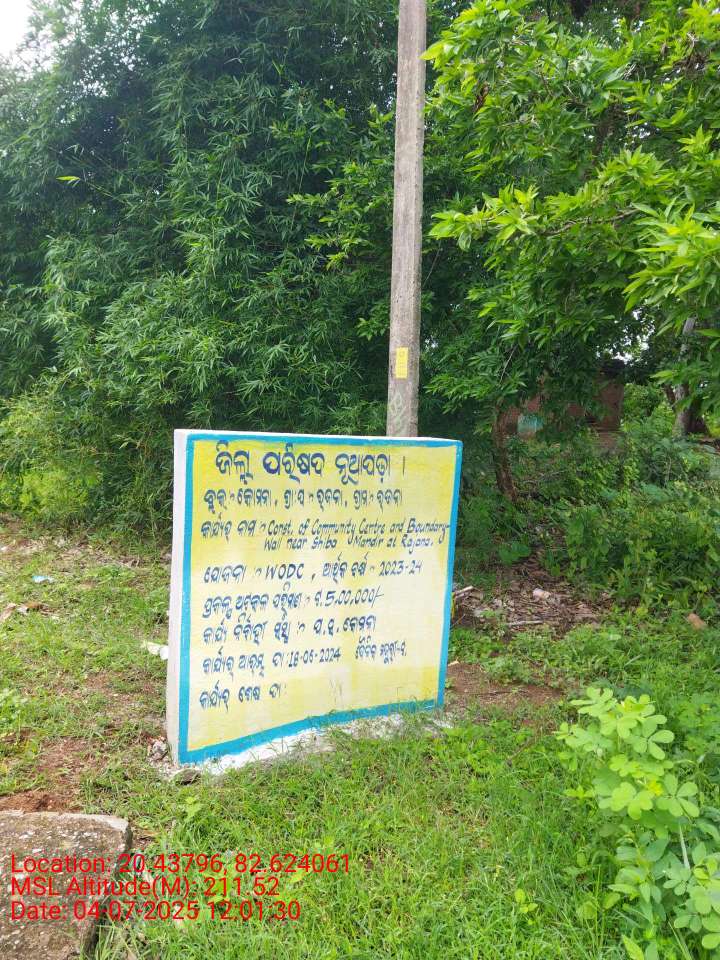 ଜିଲ୍ଲା ପରିଷଦ ନୂଆପଡ଼ା ।
ବ୍ଲକ୍ : କୋମନା, ଗ୍ରା.ପ : ରାଜନା, ଗ୍ରାମ : ରାଜନା
କାର୍ଯ୍ୟର ନାମ : Const. of Community Centre and Boundary-
Wall near Shiba Mandir at Rajana.
ଯୋଜନା : WODC, ଆର୍ଥିକ ବର୍ଷ : 2023-24
ପ୍ରକଳ୍ପ ଅଟକଳ ପରିମାଣ : ଟ.5,00,000/-
କାର୍ଯ୍ୟ ନିର୍ବାହୀ ସଂସ୍ଥା : ପ.ସ. କୋମନା
କାର୍ଯ୍ୟର ଆରମ୍ଭ ତା:18-06-2024
କାର୍ଯ୍ୟର ଶେଷ ତା:
Location: 20.43796, 82.624061
MSL Altitude(M): 211.52
Date: 04-07-2025 12:01:30